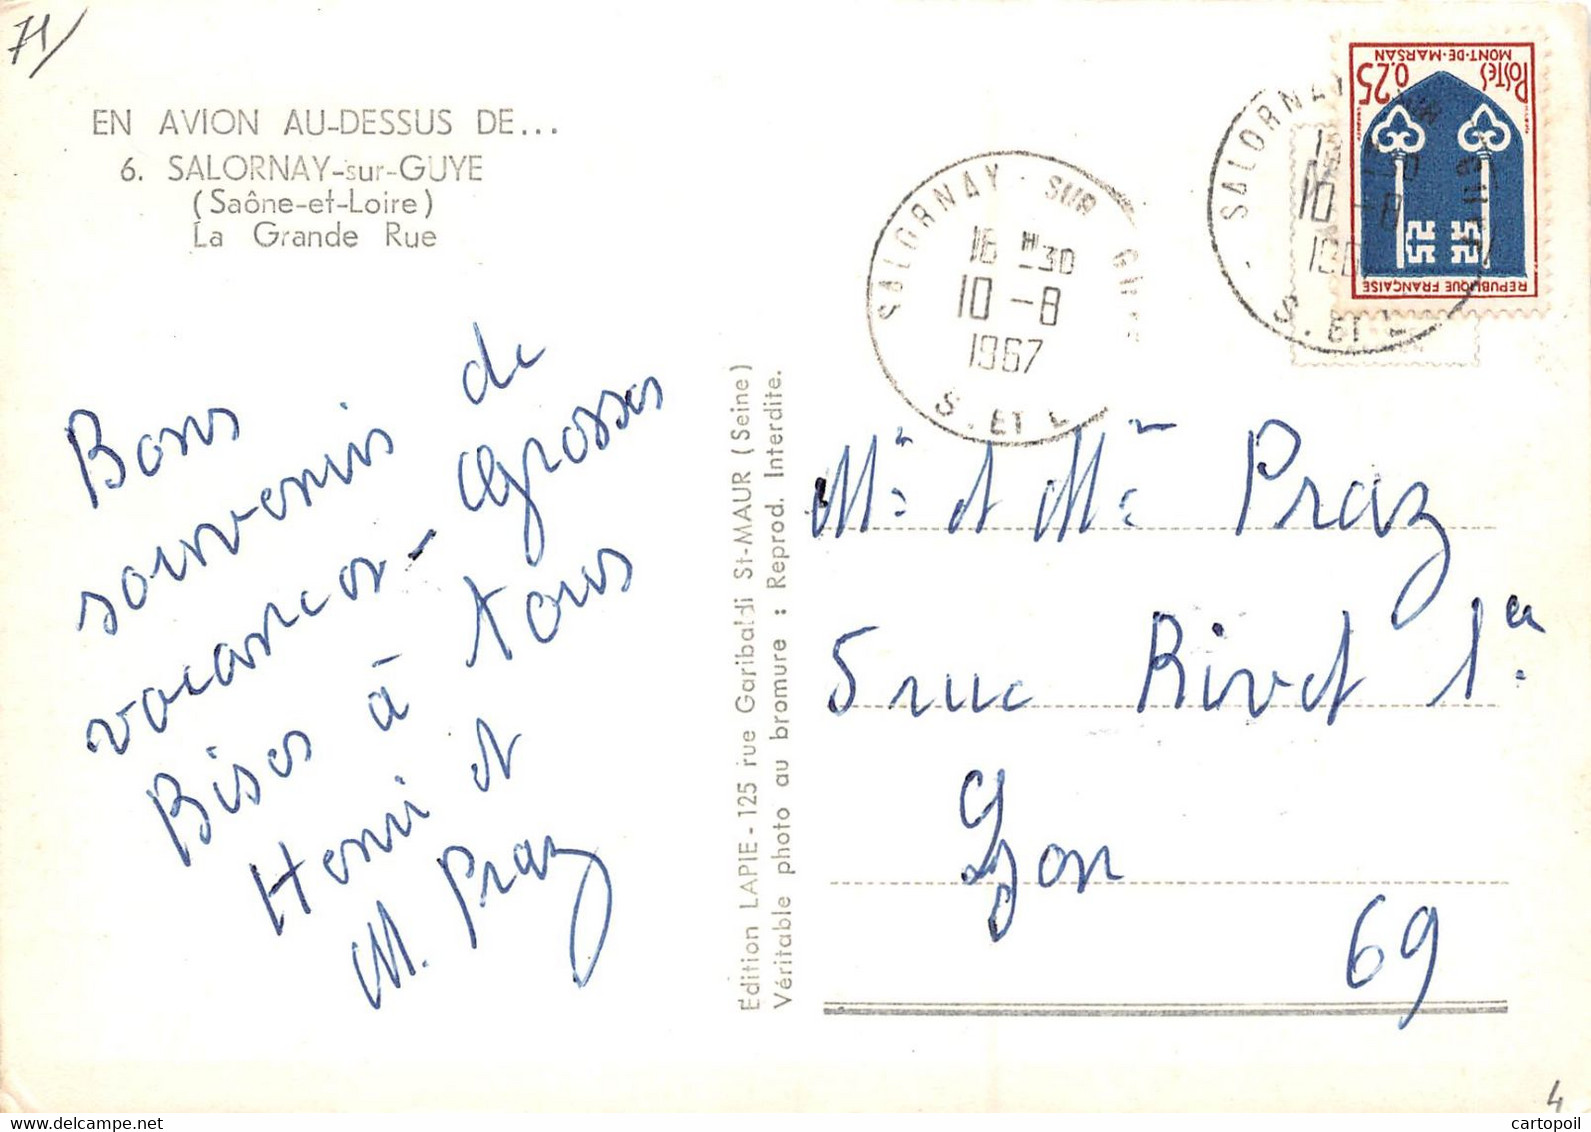 71/
EN AVION AU-DESSUS DE...
6. SALORNAY-sur-GUYE
(Saône-et-Loire)
La Grande Rue
Bons
souvenirs de
vacances - Grosses
Bises à tous
Henri et
M. Praz
Edition LAPIE - 125 rue Garibaldi St-MAUR (Seine)
Véritable photo au bromure : Reprod. Interdite.
SALORNAY SUR GUYE
16 H 30
10 - 8
1967
S. ET L
SALORNAY
10 - 8
S. ET L
POSTES
0.25
MONT-DE-MARSAN
REPUBLIQUE FRANÇAISE
Mr et Mme Praz
5 rue Rivet 1er
Lyon
69
4
cartopoil